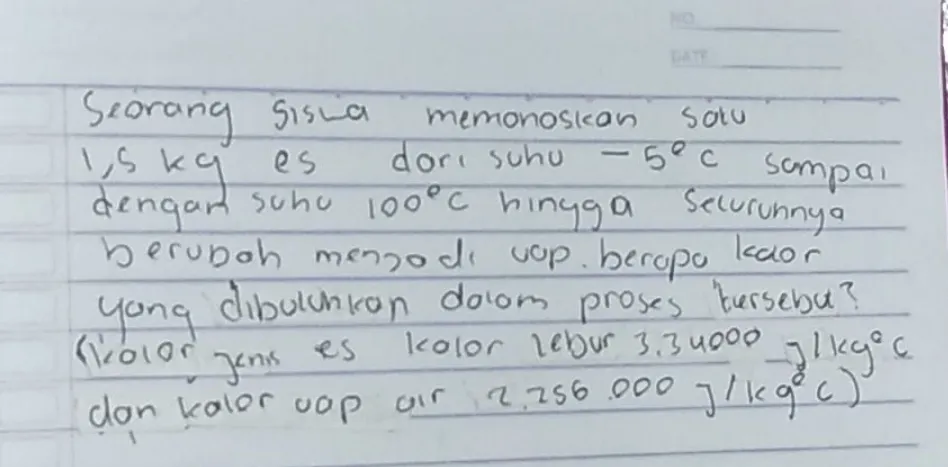 NO.
DATE
Seorang siswa memanaskan satu
1,5 kg es dari suhu -5°C sampai
dengan suhu 100°C hingga seluruhnya
berubah menjadi uap. berapa kalor
yang dibutuhkan dalam proses tersebu?
(kalor jenis es kalor lebur 3.34000 J/kg°C
dan kalor uap air 2.256.000 J/kg°C)